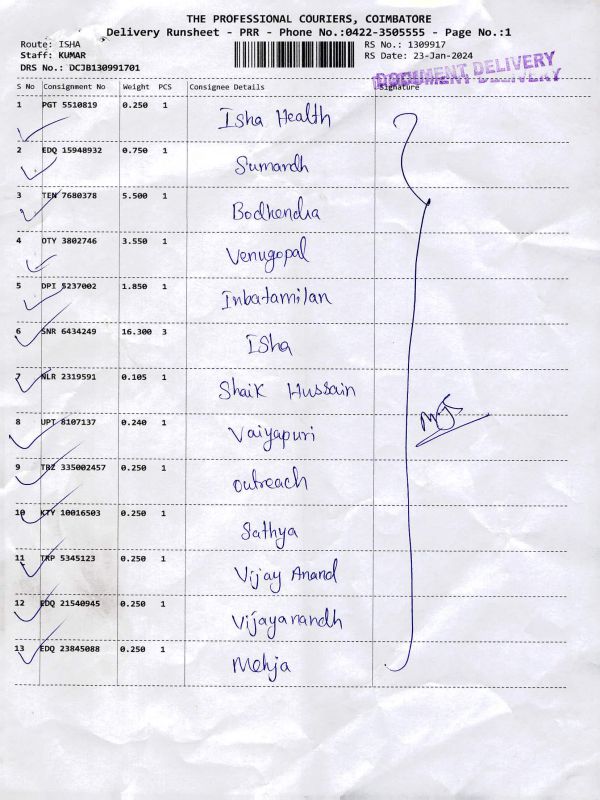 THE PROFESSIONAL COURIERS, COIMBATORE
Delivery Runsheet - PRR - Phone No.:0422-3505555 - Page No.:1
Route: ISHA RS No.: 1309917
Staff: KUMAR RS Date: 23-Jan-2024
DRS No.: DCJB130991701
DOCUMENT DELIVERY
DOCUMENT DELIVERY
S No Consignment No Weight PCS Consignee Details Signature
1 PGT 5510819 0.250 1 Isha Health
2 EDQ 15948932 0.750 1 Sumandh
3 TEN 7680378 5.500 1 Bodhendra
4 OTY 3802746 3.550 1 Venugopal
5 DPI 5237002 1.850 1 Inbatamilan
6 SNR 6434249 16.300 3 Isha
7 NLR 2319591 0.105 1 Shaik Hussain
8 UPT 8107137 0.240 1 Vaiyapuri
9 TRZ 335002457 0.250 1 outreach
10 KTY 10016503 0.250 1 Sathya
11 TRP 5345123 0.250 1 Vijay Anand
12 EDQ 21540945 0.250 1 Vijayanandh
13 EDQ 23845088 0.250 1 Mehja